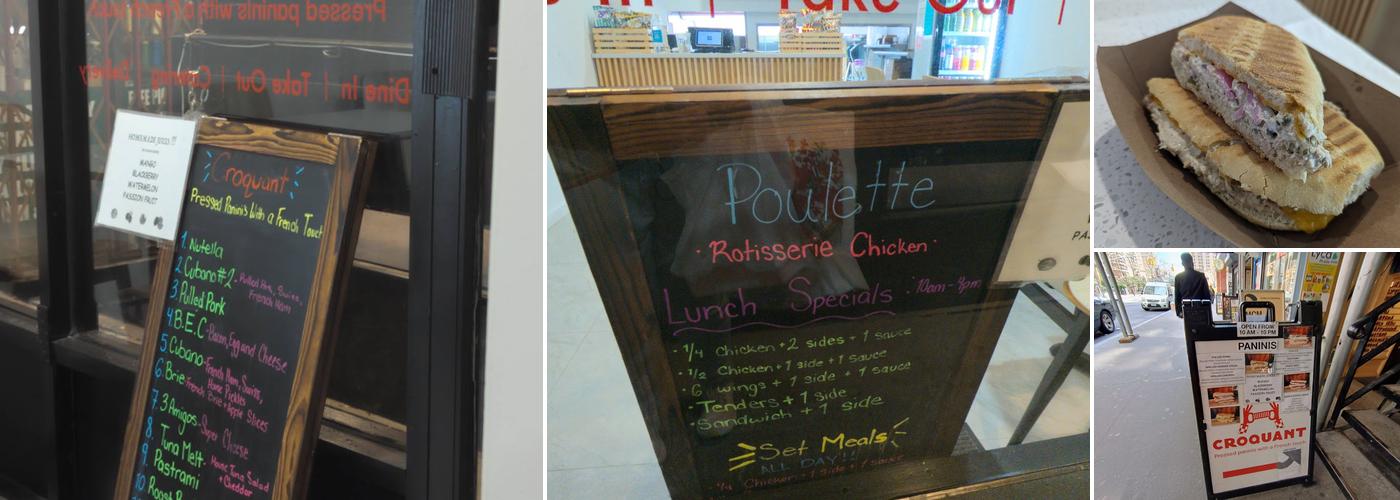 Pressed paninis with a French touch
Dine In | Take Out | Catering | Delivery
HOMEMADE JUICES !!!
MANGO
BLACKBERRY
WATERMELON
PASSION FRUIT
Croquant
Pressed Panini's With a French Touch
1. Nutella
2. Cubano #2 - Pulled Pork, Swiss,
French Ham
3. Pulled Pork
4. B.E.C - Bacon, Egg and Cheese
5. Cubano - French Ham, Swiss,
House Pickles
6. Brie - French Brie + Apple Slices
7. 3 Amigos - Super Cheese
8. Tuna Melt - House Tuna Salad
+ Cheddar
9. Pastrami
10. Roast
Take Out |
Poulette
· Rotisserie Chicken ·
Lunch Specials · 10am - 4pm
· 1/4 Chicken + 2 sides + 1 sauce
· 1/2 Chicken + 1 side + 1 sauce
· 6 wings + 1 side + 1 sauce
· Tenders + 1 side
· Sandwich + 1 side
Set Meals
ALL DAY!!
1/4 Chicken + 1 side + 1 sauce
OPEN FROM
10 AM - 10 PM
PANINIS
MANGO
BLACKBERRY
WATERMELON
PASSION FRUIT
CROQUANT
Pressed paninis with a French touch
Lyca